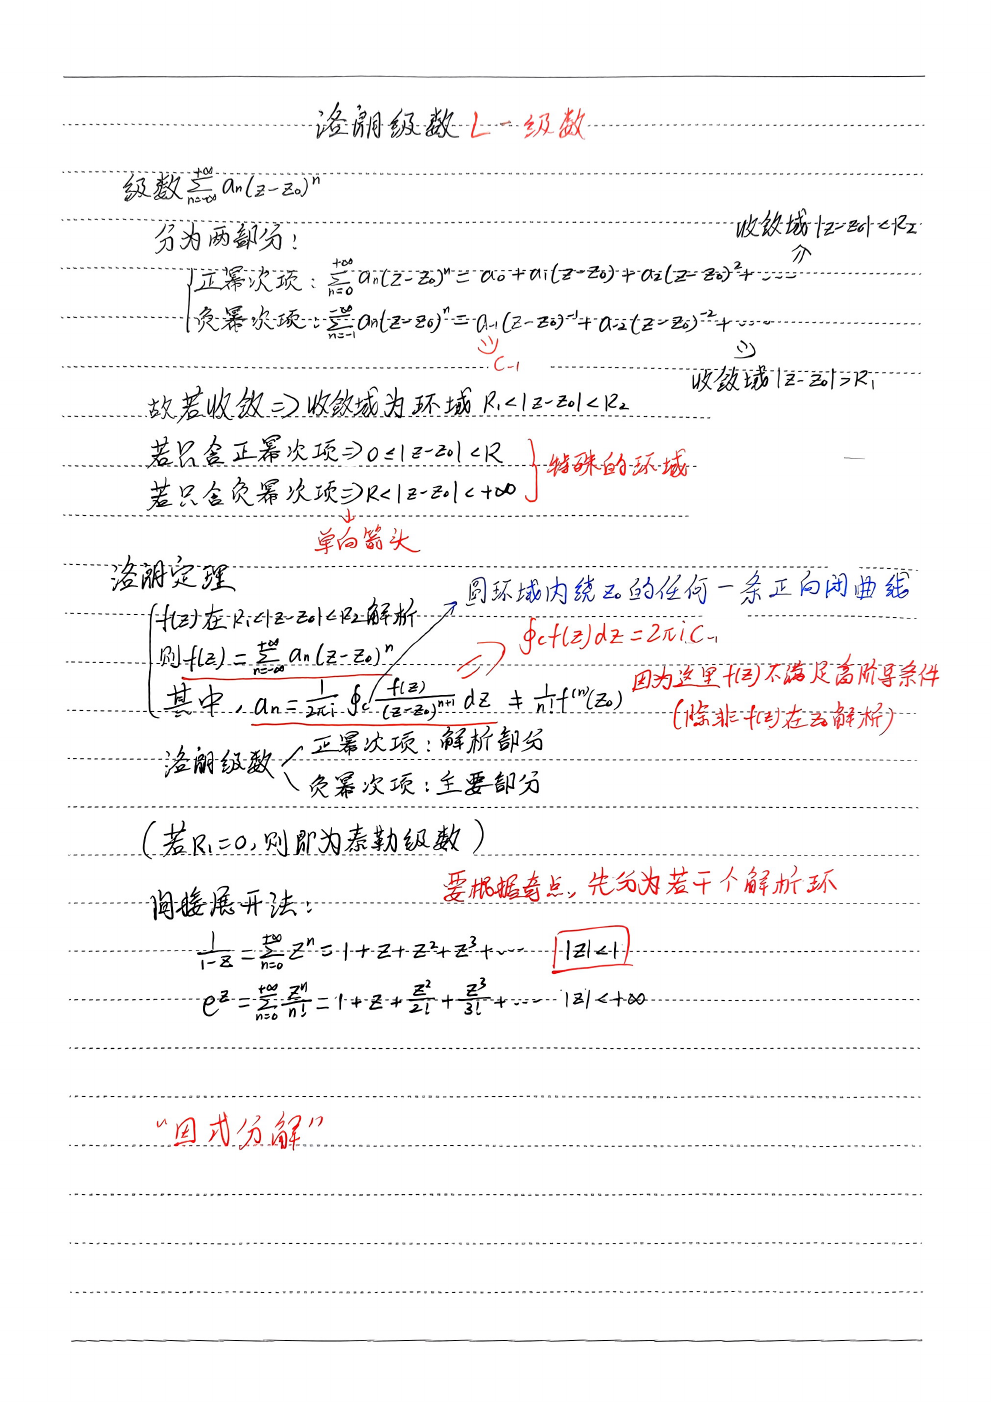 洛朗级数 L-级数
级数 $\sum_{n=-\infty}^{+\infty} a_n(z-z_0)^n$
分为两部分:
收敛域 |z-z_0|<R_2
正幂次项: $\sum_{n=0}^{+\infty} a_n(z-z_0)^n = a_0+a_1(z-z_0)+a_2(z-z_0)^2+\cdots$
负幂次项: $\sum_{n=-1}^{-\infty} a_n(z-z_0)^n = a_{-1}(z-z_0)^{-1}+a_{-2}(z-z_0)^{-2}+\cdots$
C_{-1}
收敛域 |z-z_0|>R_1
故若收敛 ⇒ 收敛域为环域 R_1<|z-z_0|<R_2
若只含正幂次项 ⇒ 0≤|z-z_0|<R
若只含负幂次项 ⇒ R<|z-z_0|<+∞
特殊的环域
单向箭头
洛朗定理
圆环域内绕z_0的任何一条正向闭曲线
f(z)在R_1<|z-z_0|<R_2解析
则 $f(z)=\sum_{n=-\infty}^{+\infty} a_n(z-z_0)^n$
⇒ $\oint_C f(z)dz=2\pi i C_{-1}$
其中, $a_n=\frac{1}{2\pi i}\oint_C \frac{f(z)}{(z-z_0)^{n+1}}dz \neq \frac{1}{n!}f^{(n)}(z_0)$
因为这里f(z)不满足高阶导条件
(除非f(z)在z_0解析)
洛朗级数
正幂次项: 解析部分
负幂次项: 主要部分
(若R_1=0,则即为泰勒级数)
间接展开法:
要根据奇点,先分为若干个解析环
$\frac{1}{1-z}=\sum_{n=0}^{+\infty} z^n=1+z+z^2+z^3+\cdots$ |z|<1
$e^z=\sum_{n=0}^{+\infty}\frac{z^n}{n!}=1+z+\frac{z^2}{2!}+\frac{z^3}{3!}+\cdots$ |z|<+∞
“因式分解”